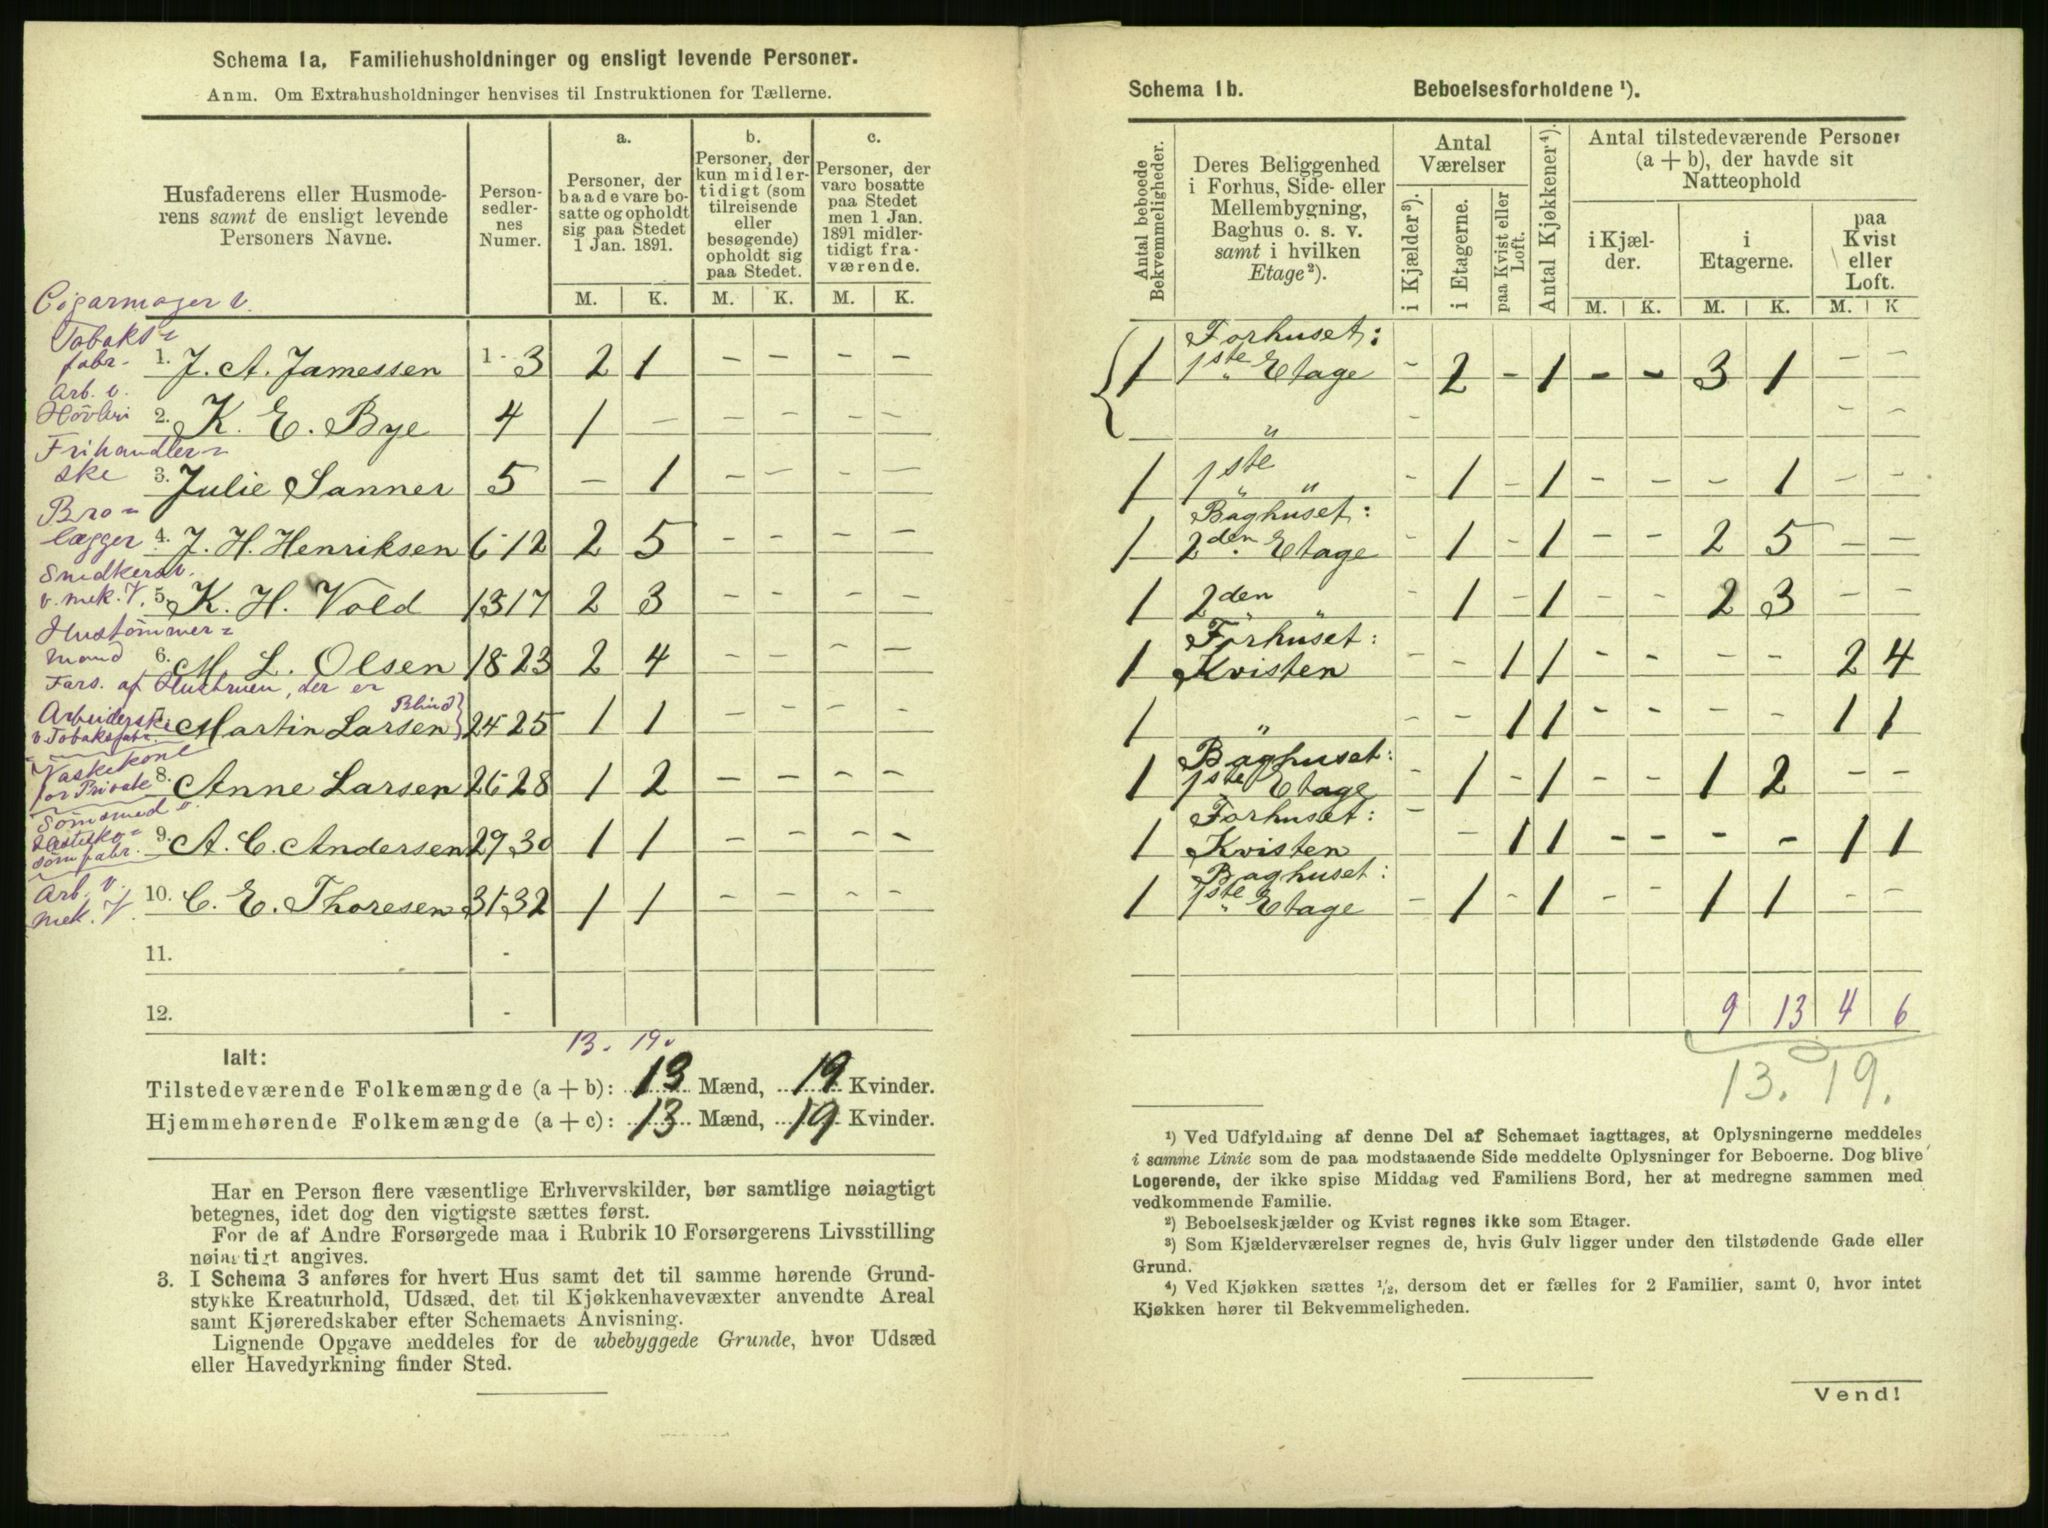 Schema 1a. Familiehusholdninger og ensligt levende Personer.
Anm. Om Extrahusholdninger henvises til Instruktionen for Tællerne.
Husfaderens eller Husmode-
rens samt de ensligt levende
Personers Navne.
Person-
sedler-
nes
Numer.
a.
Personer, der
baade vare bo-
satte og opholdt
sig paa Stedet
1 Jan. 1891.
b.
Personer, der
kun midler-
tidigt (som
tilreisende
eller
besøgende)
opholdt sig
paa Stedet.
c.
Personer, der
vare bosatte
paa Stedet
men 1 Jan.
1891 midler-
tidigt fra-
værende.
M. K. M. K. M. K.
Cigarmager v.
Tobaks=
fabr.
1. J. A. Jamessen 1-3 2 1 – – – –
Arb. v.
Høvleri
2. K. E. Bye 4 1 – – – – –
Frihandler=
ske
3. Julie Sanner 5 – 1 – – – –
Bro=
lægger
4. J. H. Henriksen 6-12 2 5 – – – –
Snedkersv.
v. mek. V.
5. K. H. Vold 13-17 2 3 – – – –
Hustømmer=
mand
6. M. L. Olsen 18-23 2 4 – – – –
Fors. af Hustruen, der er
Arbeiderske
v. Tobaksfabr.
Martin Larsen Blind 24-25 1 1 – – – –
Vaskekone
for Private
8. Anne Larsen 26-28 1 2 – – – –
Sømsmed v.
Hestesko=
sømfabr.
9. A. C. Andersen 29-30 1 1 – – – –
Arb. v.
mek. V.
10. C. E. Thoresen 31-32 1 1 – – – –
11. -
12. -
13. 19.
Ialt:
Tilstedeværende Folkemængde (a + b): 13 Mænd, 19 Kvinder.
Hjemmehørende Folkemængde (a + c): 13 Mænd, 19 Kvinder.
Har en Person flere væsentlige Erhvervskilder, bør samtlige nøiagtigt
betegnes, idet dog den vigtigste sættes først.
For de af Andre Forsørgede maa i Rubrik 10 Forsørgerens Livsstilling
nøiagtigt angives.
3. I Schema 3 anføres for hvert Hus samt det til samme hørende Grund-
stykke Kreaturhold, Udsæd, det til Kjøkkenhavevæxter anvendte Areal
samt Kjøreredskaber efter Schemaets Anvisning.
Lignende Opgave meddeles for de ubebyggede Grunde, hvor Udsæd
eller Havedyrkning finder Sted.
Schema 1b. Beboelsesforholdene ¹).
Antal beboede
Bekvemmeligheder.
Deres Beliggenhed
i Forhus, Side- eller
Mellembygning,
Baghus o. s. v.
samt i hvilken
Etage²).
Antal
Værelser
i Kjælder³).
i Etagerne.
paa Kvist eller
Loft.
Antal Kjøkkener⁴).
Antal tilstedeværende Personer
(a + b), der havde sit
Natteophold
i Kjæl-
der.
i
Etagerne.
paa
Kvist
eller
Loft.
M. K. M. K. M. K
Forhuset:
1 1ste Etage – 2 – 1 – – 3 1 – –
" – – –
1 1ste " " – 1 – 1 – – – 1 – –
Baghuset:
1 2den Etage – 1 – 1 – – 2 5 – –
1 2den " " – 1 – 1 – – 2 3 – –
Forhuset:
1 Kvisten – – 1 1 – – – – 2 4
1 " – – 1 1 – – – – 1 1
Baghuset:
1 1ste Etage – 1 – 1 – – 1 2 – –
Forhuset:
1 Kvisten – – 1 1 – – – – 1 1
Baghuset:
1 1ste Etage – 1 – 1 – – 1 1 – –
9 13 4 6
13. 19.
¹) Ved Udfyldning af denne Del af Schemaet iagttages, at Oplysningerne meddeles
i samme Linie som de paa modstaaende Side meddelte Oplysninger for Beboerne. Dog blive
Logerende, der ikke spise Middag ved Familiens Bord, her at medregne sammen med
vedkommende Familie.
²) Beboelseskjælder og Kvist regnes ikke som Etager.
³) Som Kjælderværelser regnes de, hvis Gulv ligger under den tilstødende Gade eller
Grund.
⁴) Ved Kjøkken sættes ½, dersom det er fælles for 2 Familier, samt 0, hvor intet
Kjøkken hører til Bekvemmeligheden.
Vend!